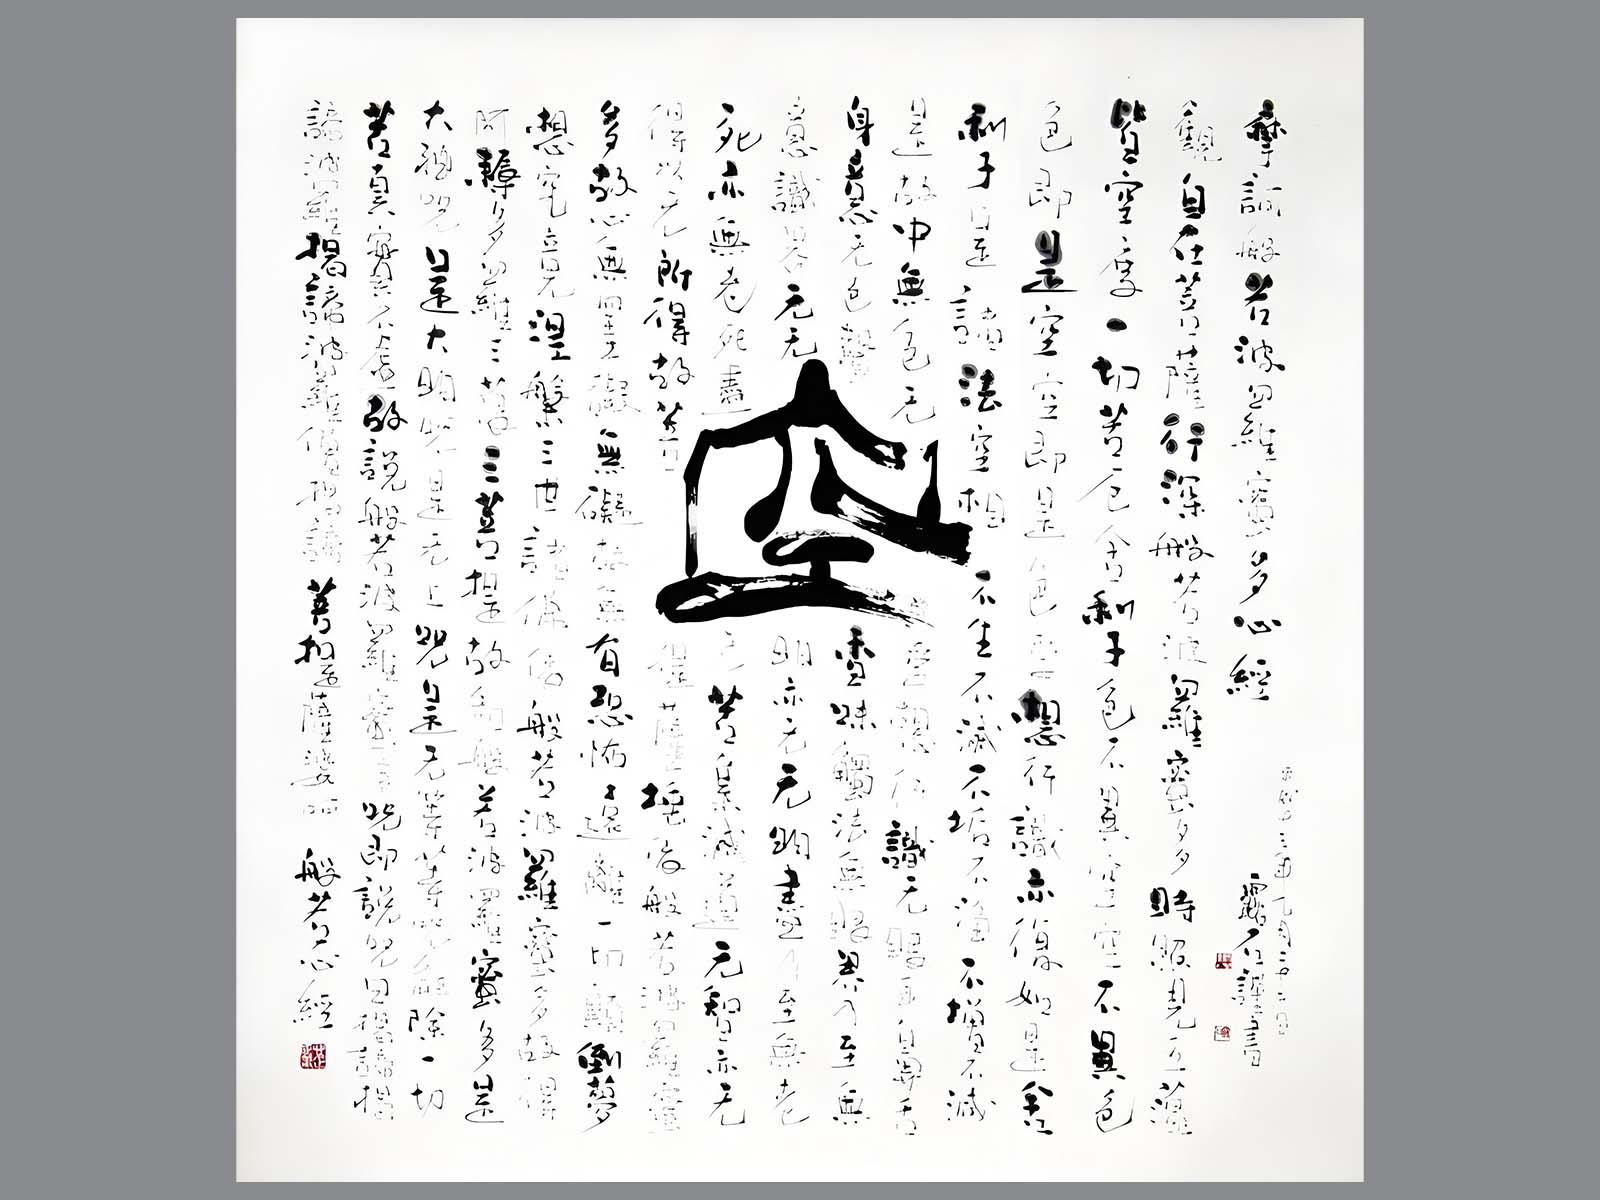 摩訶般若波羅蜜多心經
觀自在菩薩行深般若波羅蜜多時照見五蘊
皆空度一切苦厄舍利子色不異空空不異色
色即是空空即是色受想行識亦復如是舍
利子是諸法空相不生不滅不垢不淨不增不減
是故中無色无受想行識无眼耳鼻舌
身意无色聲香味觸法無眼界乃至無
意識界无无明亦无无明盡乃至無老
死亦無老死盡无苦集滅道无智亦无
得以无所得故菩提薩埵依般若波羅蜜
多故心無罣礙無礙故無有恐怖遠離一切顛倒夢
想究竟涅槃三世諸佛依般若波羅蜜多故得
阿耨多羅三藐三菩提故知般若波羅蜜多是
大神咒是大明咒是无上咒是无等等咒能除一切
苦真實不虛故說般若波羅蜜多咒即說咒曰揭諦揭
諦波羅揭諦波羅僧揭諦菩提薩婆訶 般若心經
空
謹書